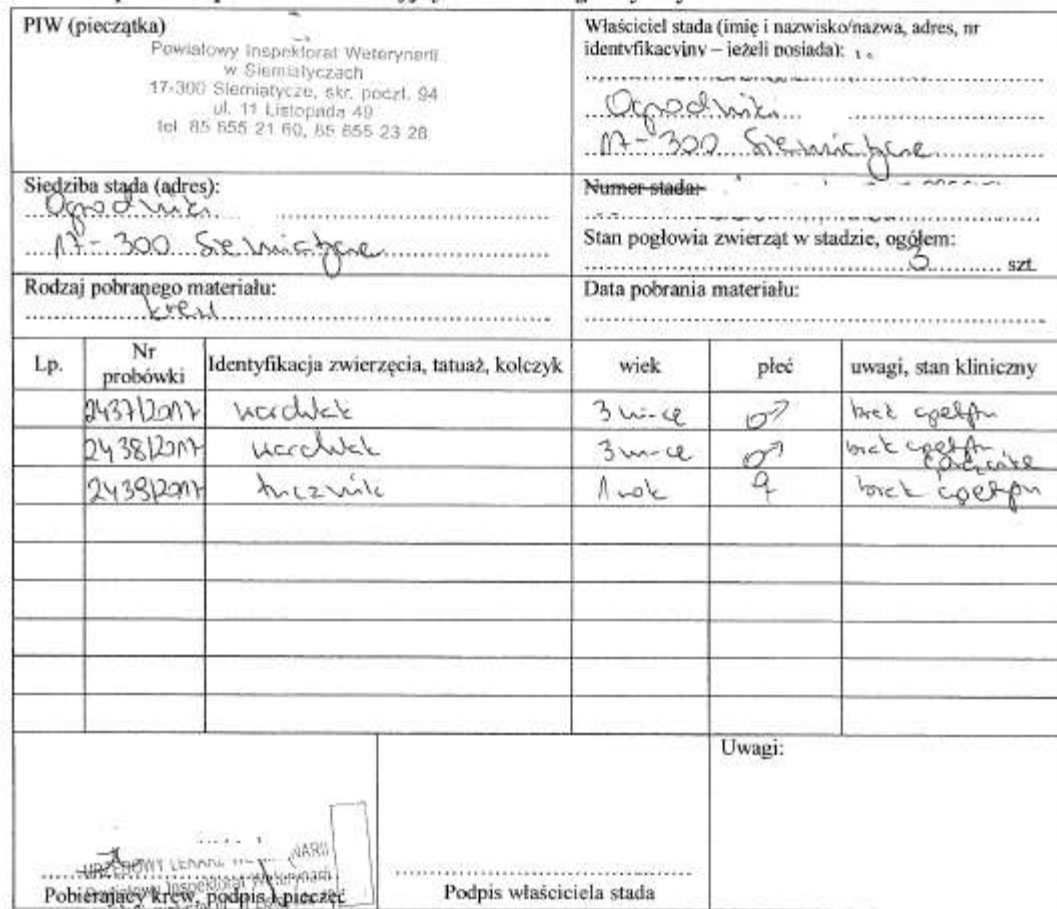 PIW (pieczątka)
Powiatowy Inspektorat Weterynarii
w Siemiatyczach
17-300 Siemiatycze, skr. poczt. 94
ul. 11 Listopada 49
tel. 85 655 21 60, 85 655 23 28
Właściciel stada (imię i nazwisko/nazwa, adres, nr
identyfikacyjny – jeżeli posiada):
Ogrodniki
17-300 Siemiatycze
Siedziba stada (adres):
Ogrodniki
17-300 Siemiatycze
Numer stada:
Stan pogłowia zwierząt w stadzie, ogółem:
3 szt.
Rodzaj pobranego materiału:
krew
Data pobrania materiału:
Lp. Nr probówki Identyfikacja zwierzęcia, tatuaż, kolczyk wiek płeć uwagi, stan kliniczny
2437/2017 warchlak 3 m-ce ♂ brak apetytu
2438/2017 warchlak 3 m-ce ♂ brak apetytu
2439/2017 tucznik 1 rok ♀ brak apetytu
Uwagi:
URZĘDOWY WETERYNARII
Powiatowy Inspektorat Weterynarii
Pobierający krew, podpis i pieczęć
Podpis właściciela stada